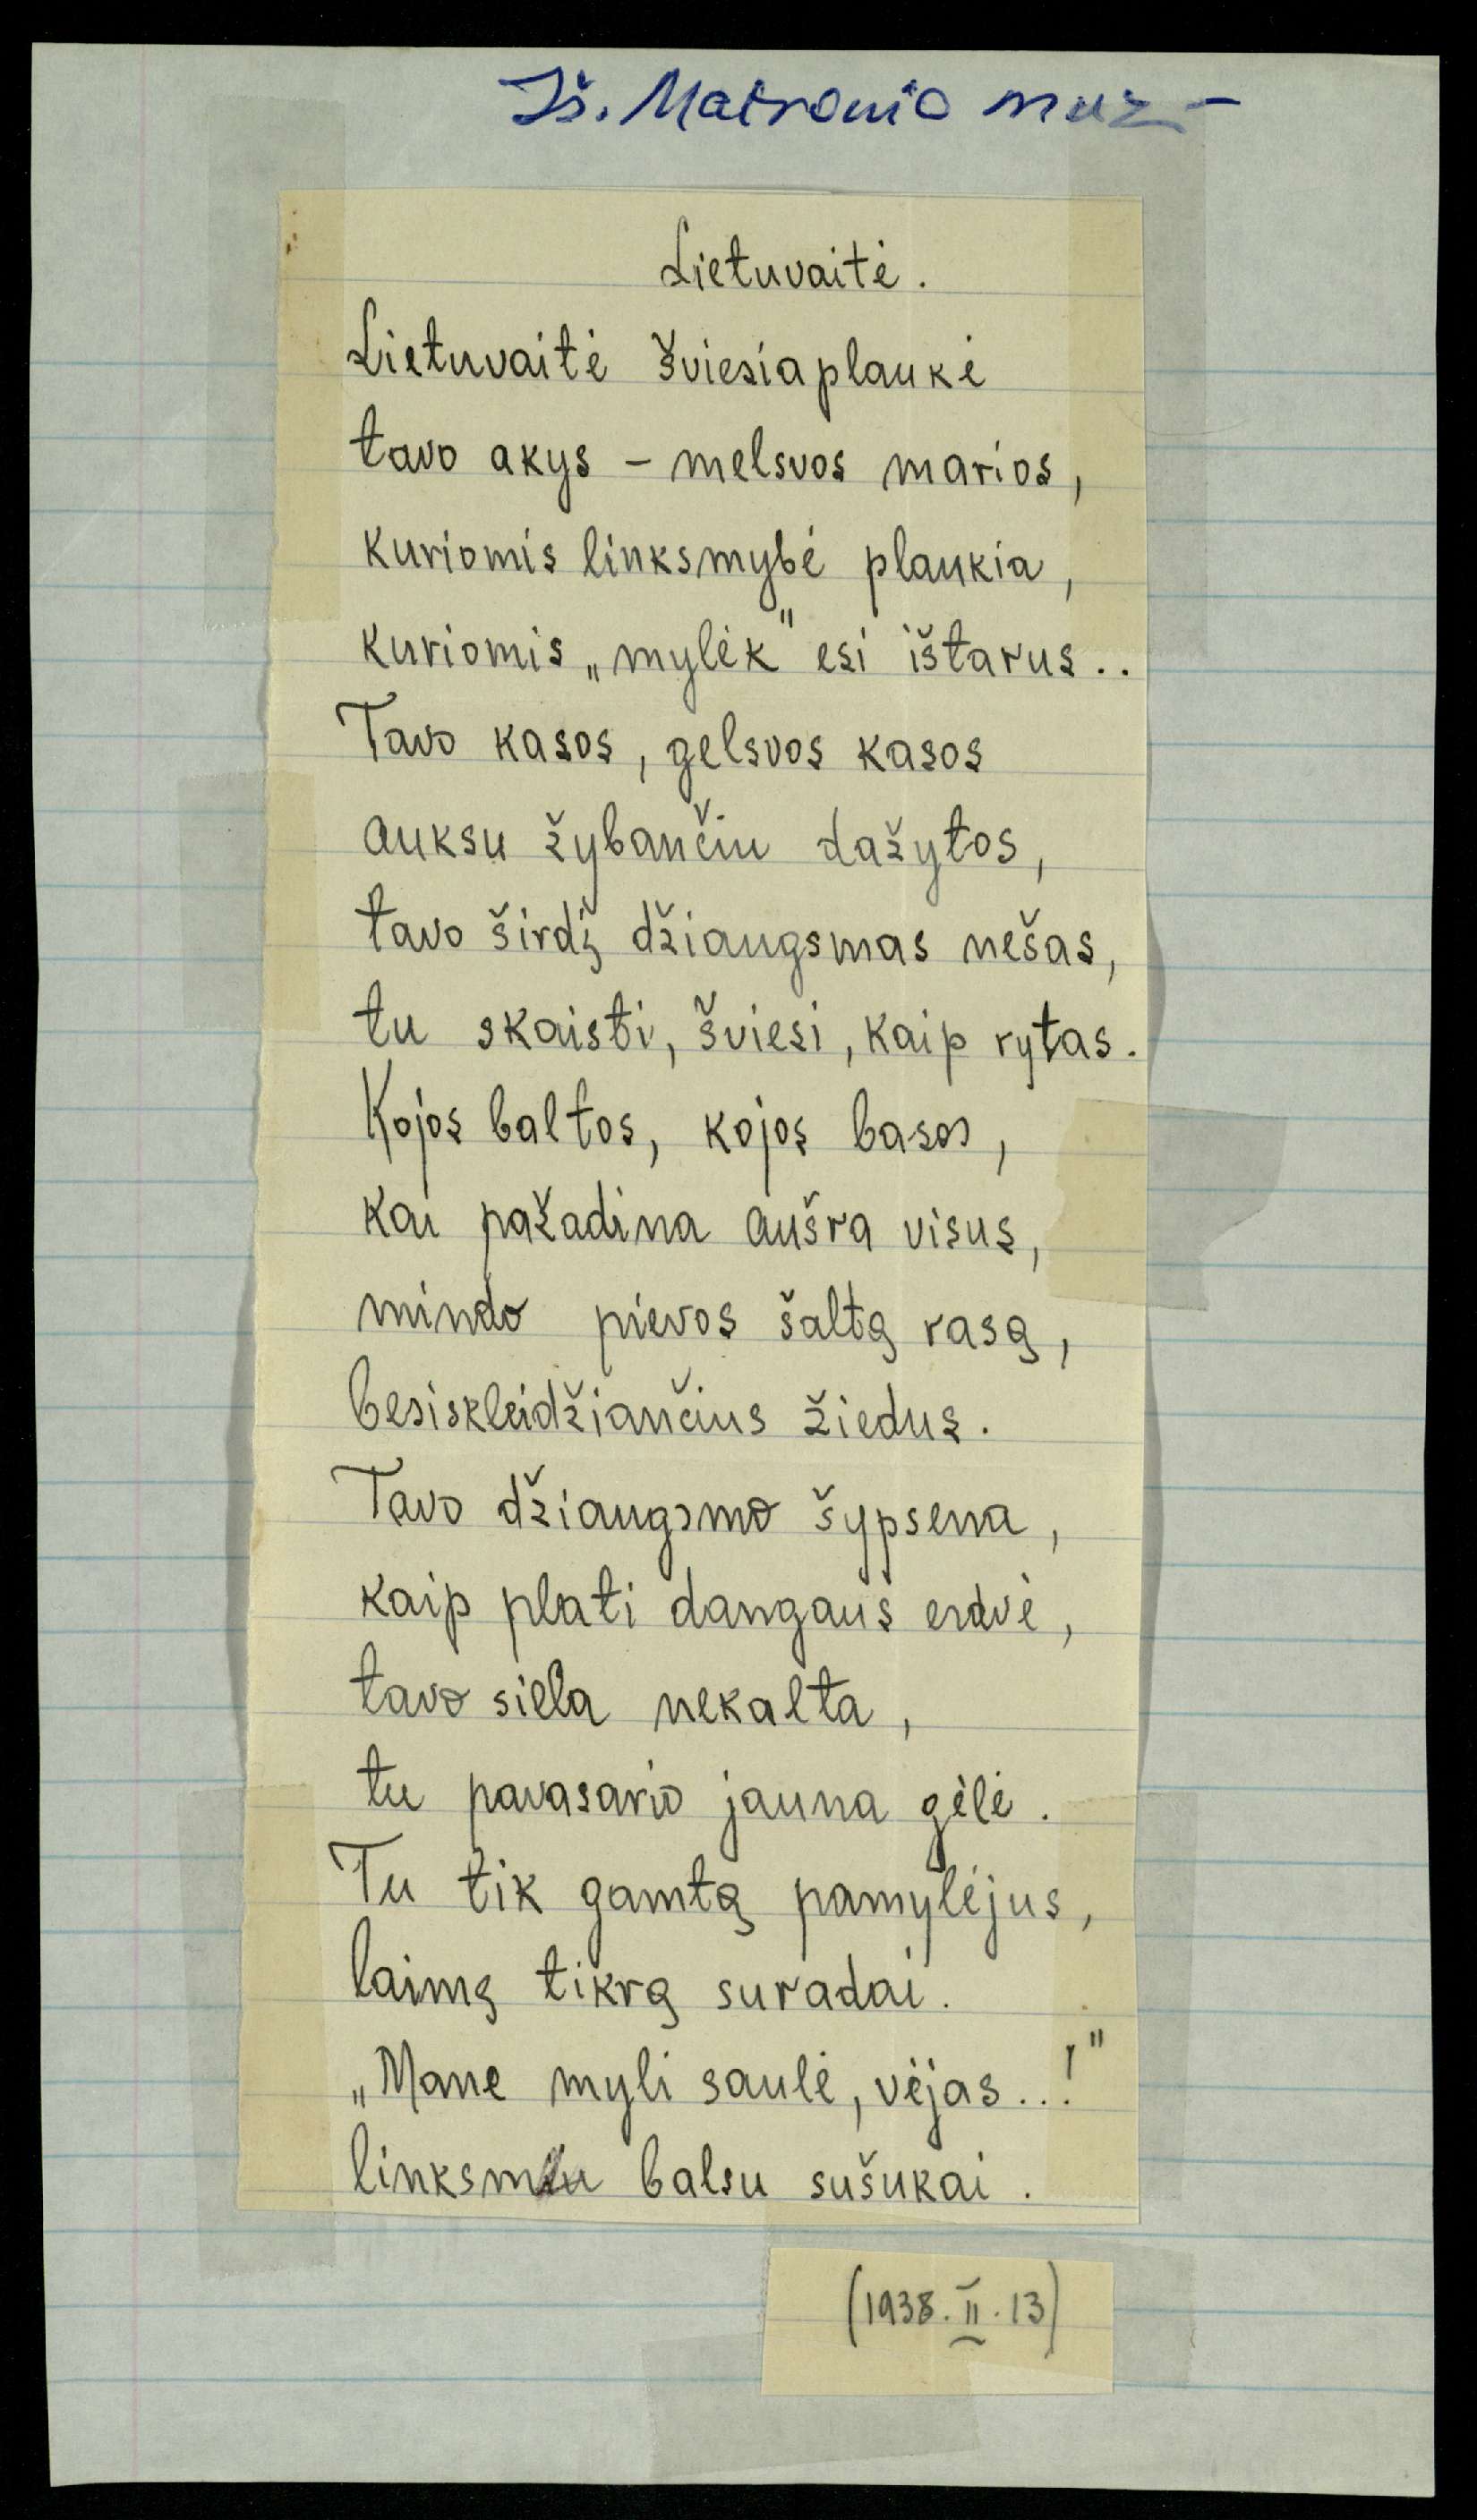 Iš. Maironio muz-
Lietuvaitė.
Lietuvaitė šviesiaplaukė
tavo akys – melsvos marios,
kuriomis linksmybė plaukia,
kuriomis „mylėk" esi ištarus..
Tavo kasos, gelsvos kasos
auksu žybančiu dažytos,
tavo širdį džiaugsmas nešas,
tu skaisti, šviesi, kaip rytas.
Kojos baltos, kojos basos,
kai pažadina aušra visus,
mindo pievos šaltą rasą,
besiskleidžiančius žiedus.
Tavo džiaugsmo šypsena,
kaip plati dangaus erdvė,
tavo siela nekalta,
tu pavasario jauna gėlė.
Tu tik gamtą pamylėjus,
laimę tikrą suradai.
„Mane myli saulė, vėjas..!"
linksmiu balsu sušukai.
(1938.II.13)